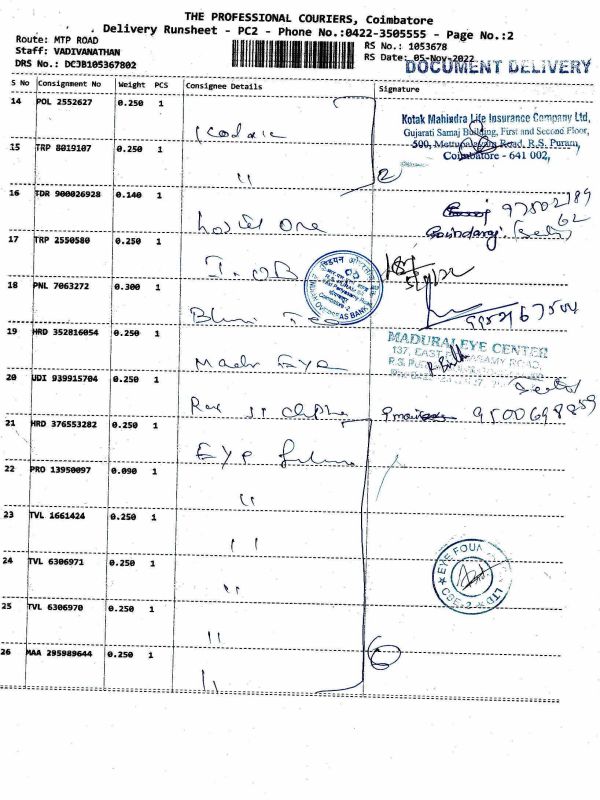 THE PROFESSIONAL COURIERS, Coimbatore
Delivery Runsheet - PC2 - Phone No.:0422-3505555 - Page No.:2
Route: MTP ROAD
RS No.: 1053678
Staff: VADIVANATHAN
RS Date: 05-Nov-2022
DRS No.: DCJB105367802
DOCUMENT DELIVERY
S No Consignment No Weight PCS Consignee Details Signature
14 POL 2552627 0.250 1 Kodak
Kotak Mahindra Life Insurance Company Ltd,
Gujarati Samaj Building, First and Second Floor,
500, Mettupalayam Road, R.S. Puram,
Coimbatore - 641 002,
15 TRP 8019107 0.250 1 "
2
16 TDR 900026928 0.140 1 Hostel One
17 TRP 2550580 0.250 1 I.O.B
INDIAN OVERSEAS BANK
18 PNL 7063272 0.300 1
19 HRD 352816054 0.250 1 Madr Eye
MADURAI EYE CENTER
137, EAST
20 UDI 939915704 0.250 1
21 HRD 376553282 0.250 1 Eye
22 PRO 13950097 0.090 1 "
23 TVL 1661424 0.250 1 "
24 TVL 6306971 0.250 1 "
EYE FOUN
LTD
CBE-2
25 TVL 6306970 0.250 1 "
26 MAA 295989644 0.250 1 "
6